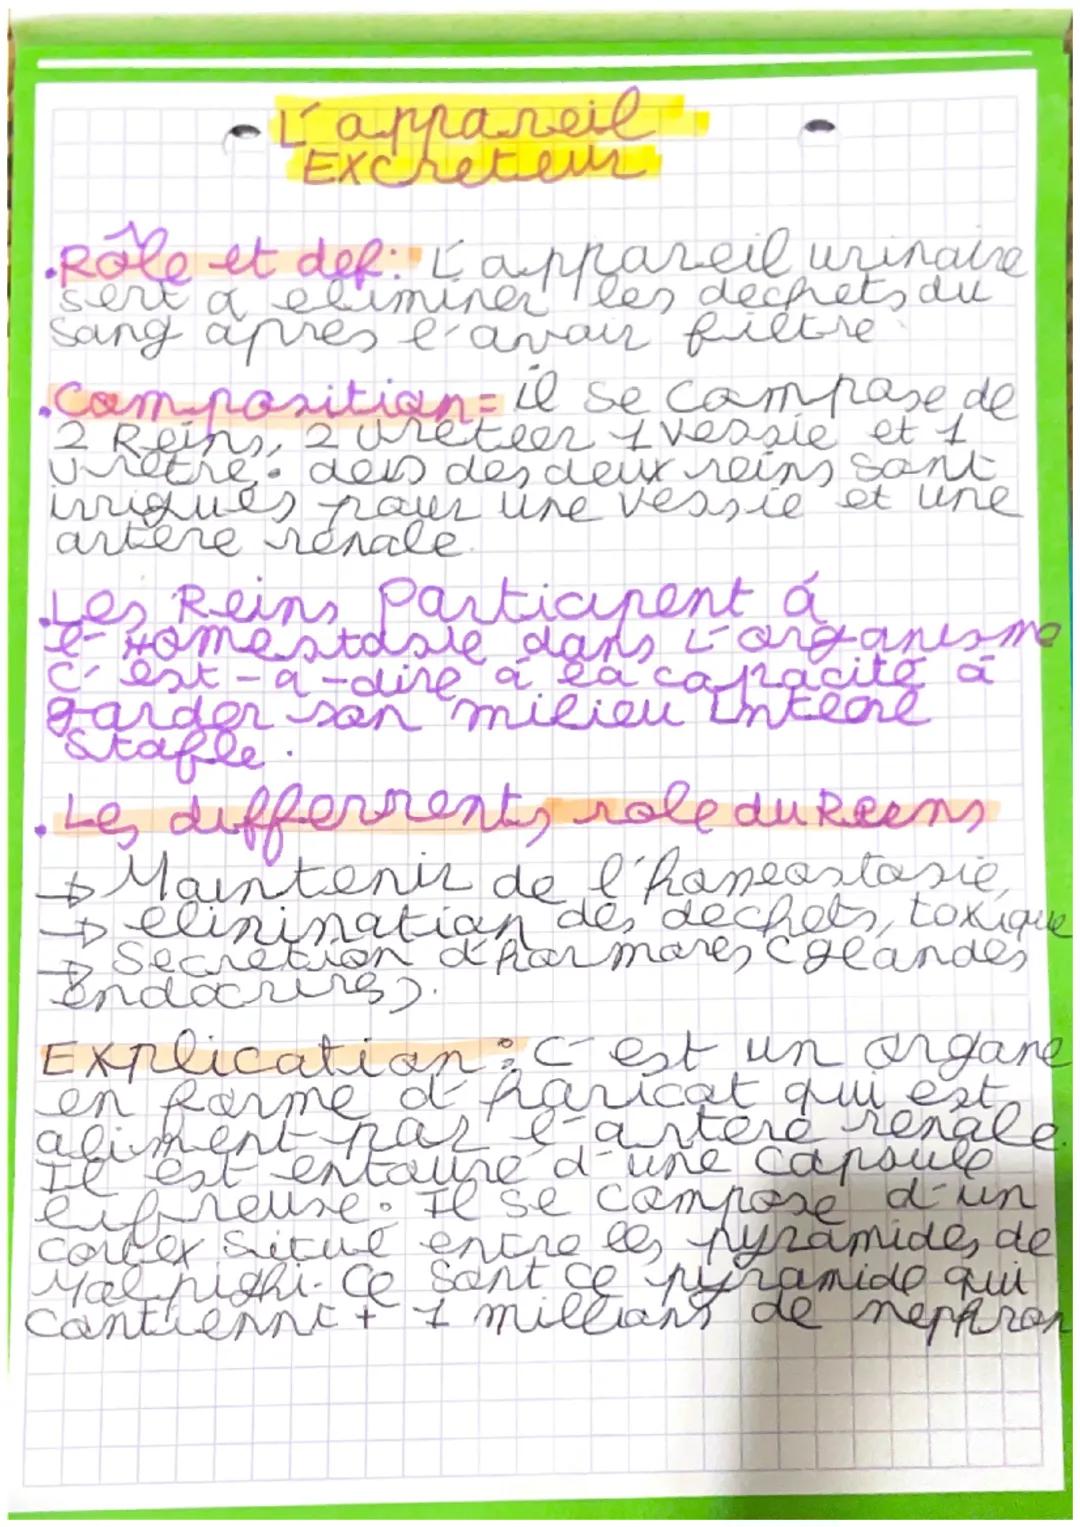 L'appareil
EXcreteur
.Rôle et def: L'appareil urinaire
sert a eliminer les dechets du
sang apres l'avoir filtre
.Composition= il se compose de
2 Reins, 2 ureteer 1 vessie et 1
uretre. des deux reins sont
irrigués pour une vessie et une
artere renale.
.Les Reins Participent á
l'Homestasie dans L'organisme
C'est-a-dire a la capacité a
garder son milieu interne
stable.
.Les differrents role du Reins
→ Maintenir de l'homeostasie,
→ elinination des dechets, toxique
→ Secretion d'hormones (glandes
endocrines).
EXplication : C'est un organe
en forme d'haricot qui est
aliment par l'artere renale.
Il est entoure d'une capsule
fibreuse. Il se compose d'un
cortex situé entre les pyramides de
Malpighi. Ce sont ce pyramide qui
contiennt + 1 millions de nephron